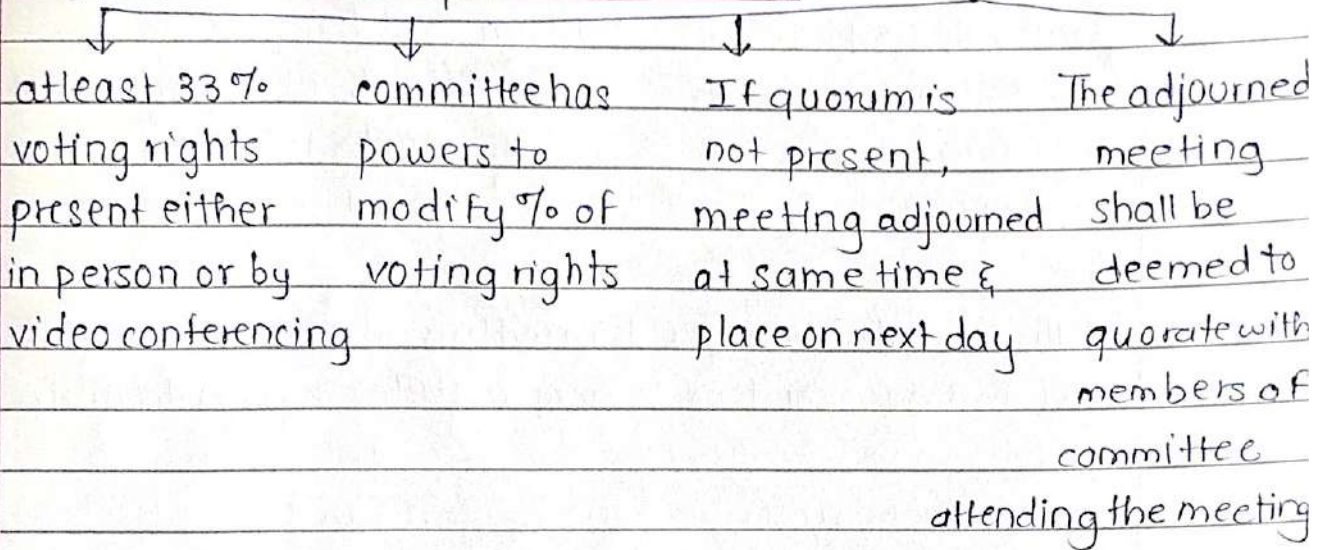 atleast 33%
voting rights
present either
in person or by
video conferencing
committee has
powers to
modify % of
voting rights
If quorum is
not present,
meeting adjourned
at same time &
place on next day
The adjourned
meeting
shall be
deemed to
quorate with
members of
committee
attending the meeting